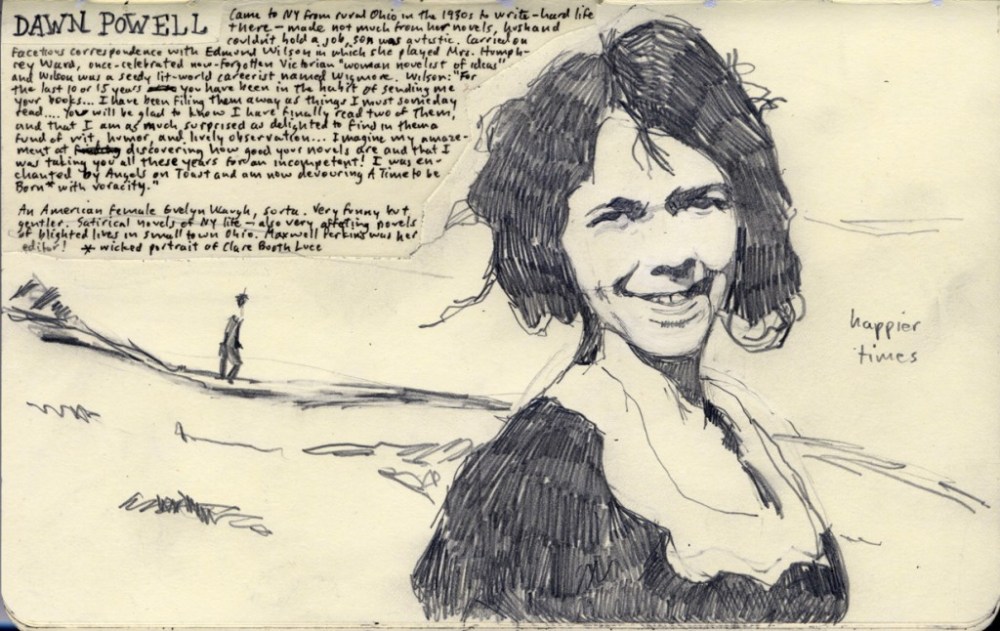 DAWN POWELL
Came to NY from rural Ohio in the 1930s to write – hard life
there – made not much from her novels, husband
couldn't hold a job, son was autistic. Carried on
facetious correspondence with Edmund Wilson in which she played Mrs. Humph-
rey Ward, once-celebrated now-forgotten Victorian "woman novelist of ideas"
and Wilson was a seedy lit-world careerist named Wigmore. Wilson: "For
the last 10 or 15 years you have been in the habit of sending me
your books... I have been filing them away as things I must someday
read.... You will be glad to know I have finally read two of them,
and that I am as much surprised as delighted to find in them a
fund of wit, humor, and lively observation... Imagine my amaze-
ment at discovering how good your novels are and that I
was taking you all these years for an incompetent! I was en-
chanted by Angels on Toast and am now devouring A Time to be
Born* with voracity."
An American female Evelyn Waugh, sorta. Very funny but
gentler. Satirical novels of NY life – also very affecting novels
of blighted lives in small town Ohio. Maxwell Perkins was her
editor! * wicked portrait of Clare Booth Luce
happier
times